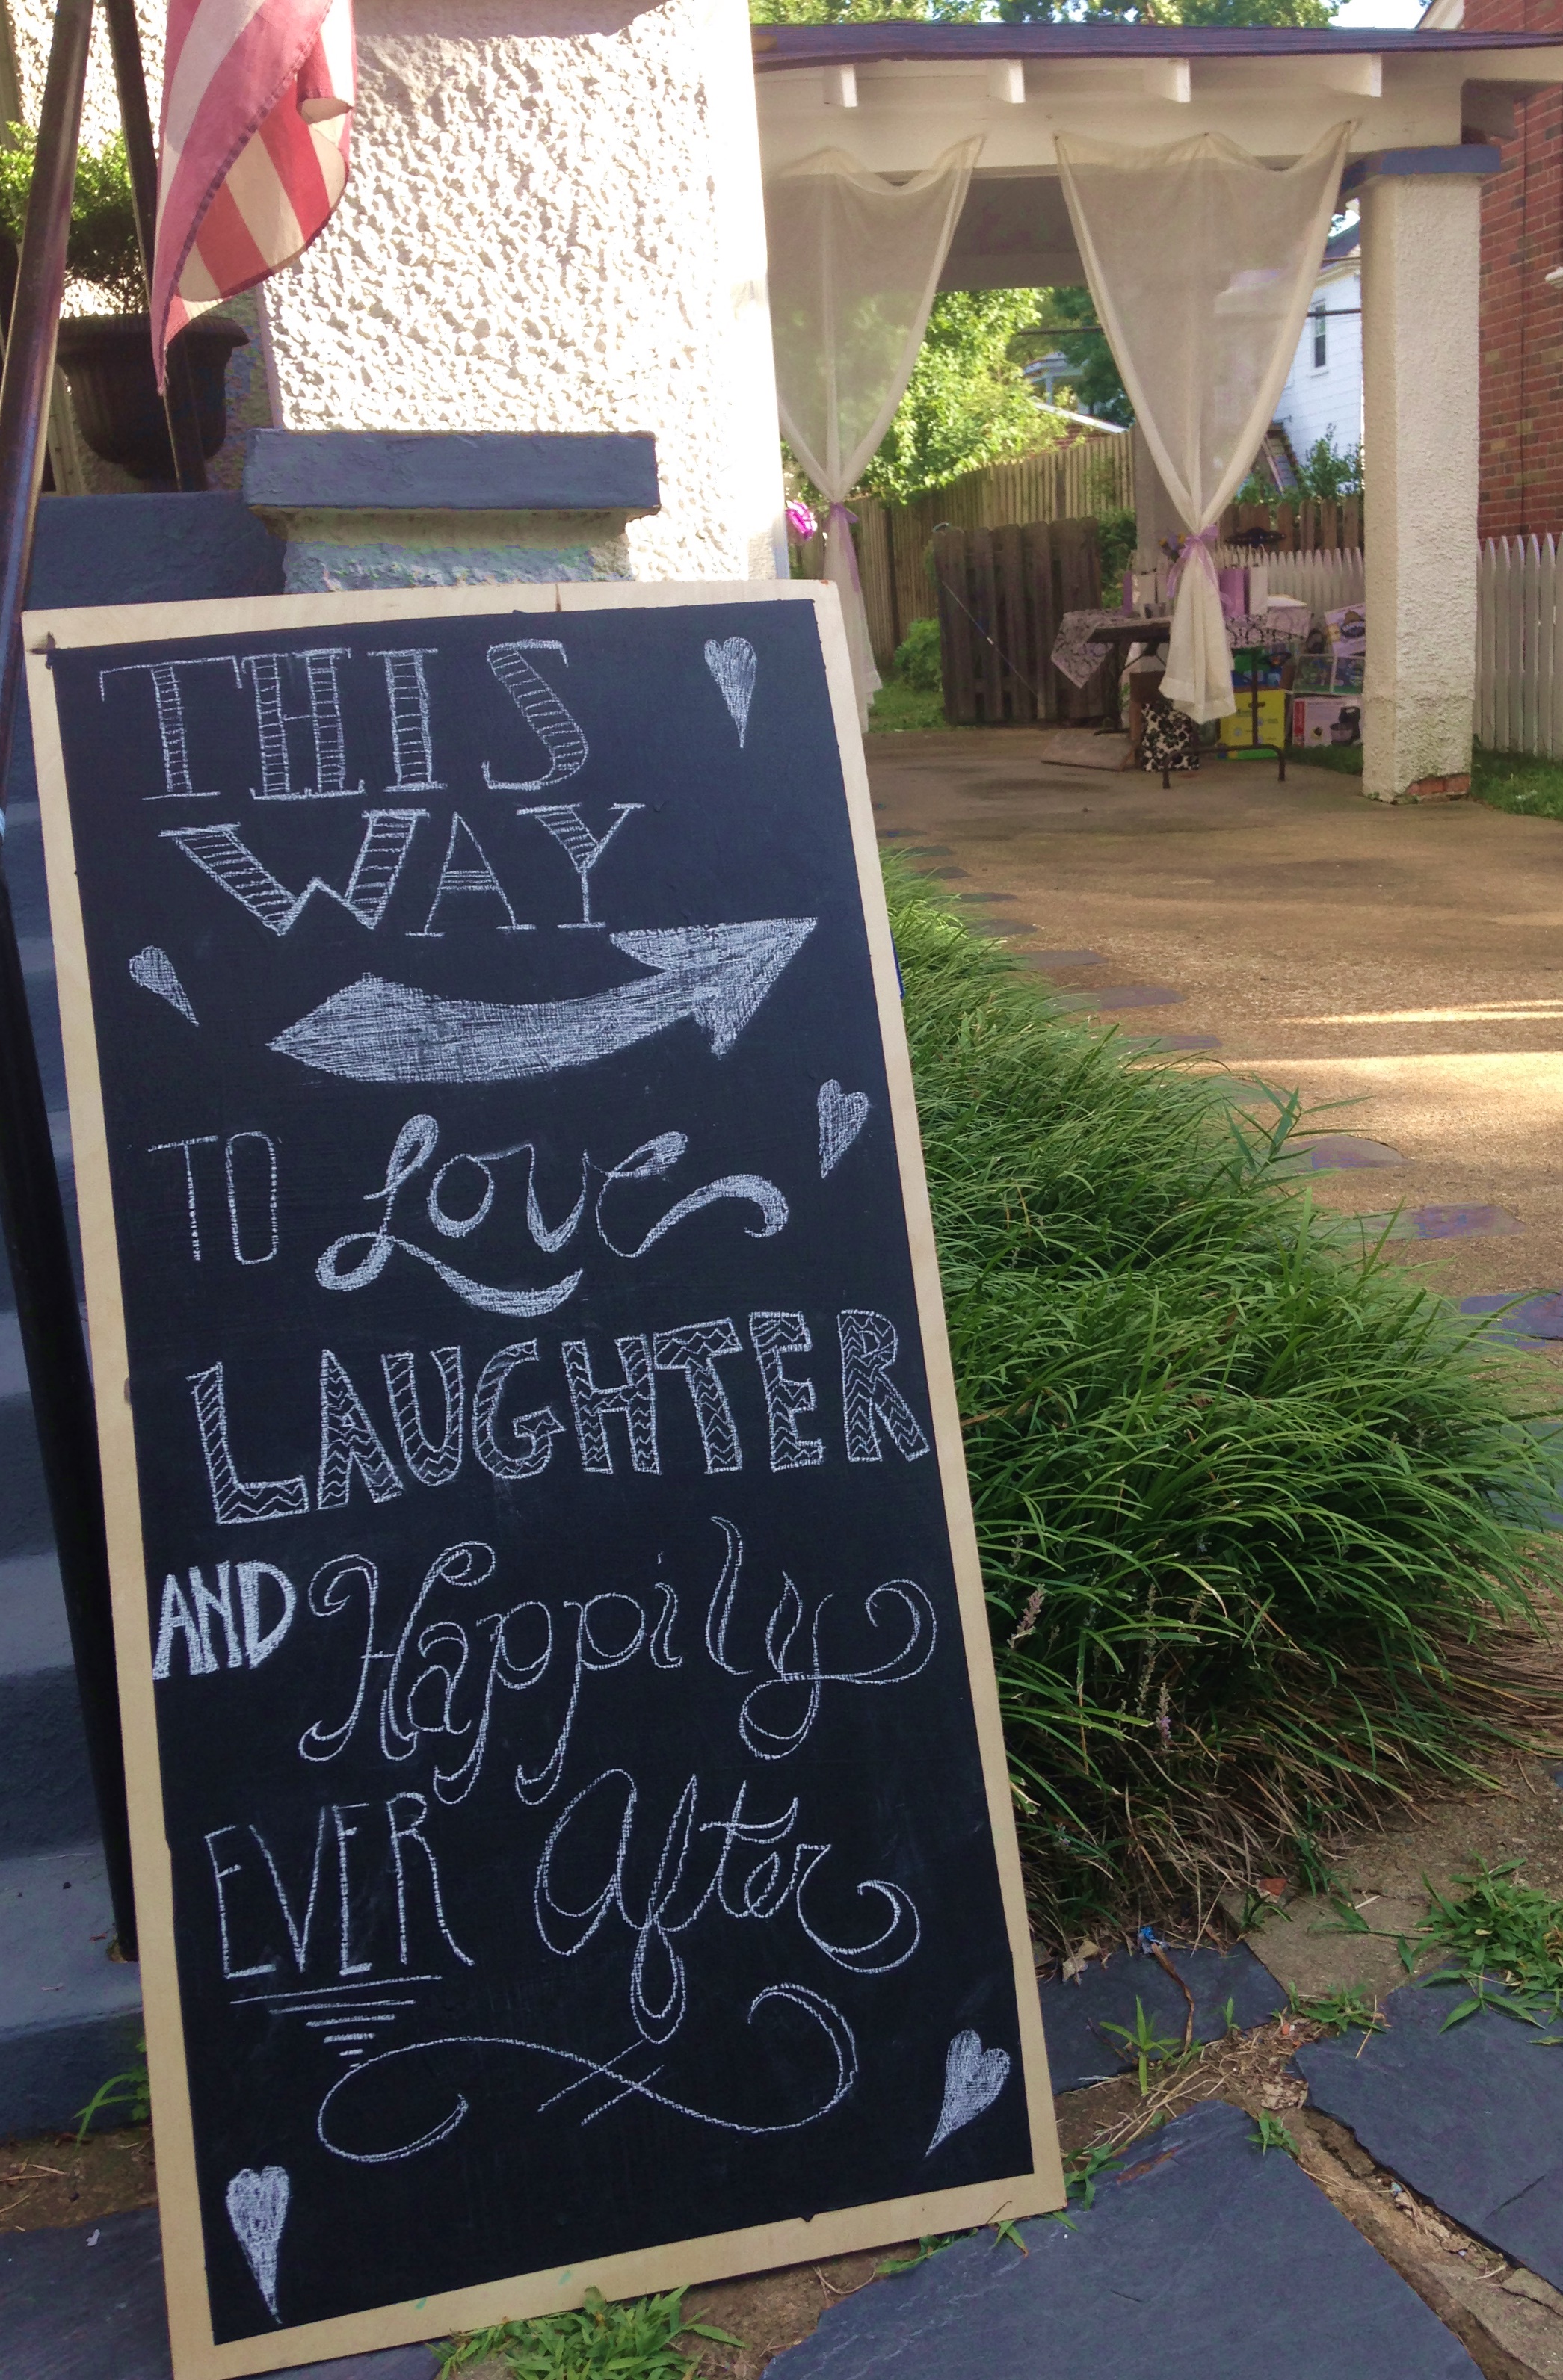 THIS
WAY
TO Love
LAUGHTER
AND Happily
EVER After